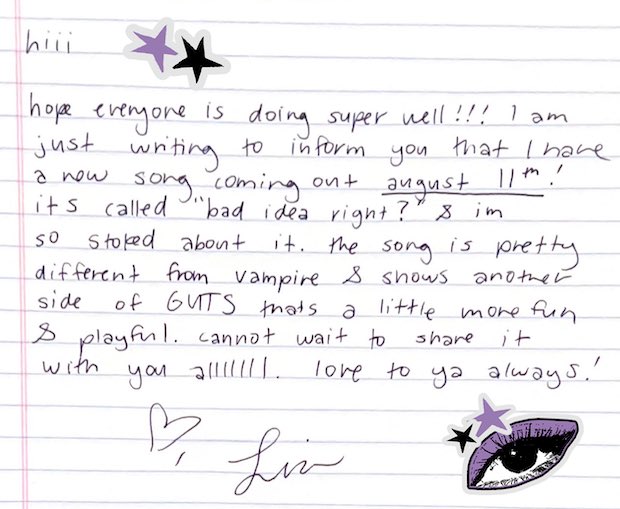 hiii
hope everyone is doing super well!!! I am
just writing to inform you that I have
a new song coming out august 11th!
its called "bad idea right?" & im
so stoked about it. the song is pretty
different from vampire & shows another
side of GUTS thats a little more fun
& playful. cannot wait to share it
with you alllllll. love to ya always!
♡, Liv